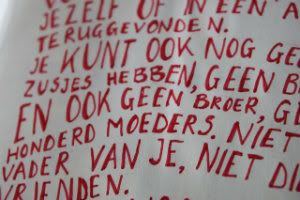 JEZELF OF IN EEN A
TERUGGEVONDEN.
JE KUNT OOK NOG GEE
ZUSJES HEBBEN, GEEN B
EN OOK GEEN BROER, G
HONDERD MOEDERS. NIET
VADER VAN JE, NIET DI
VRIENDEN.